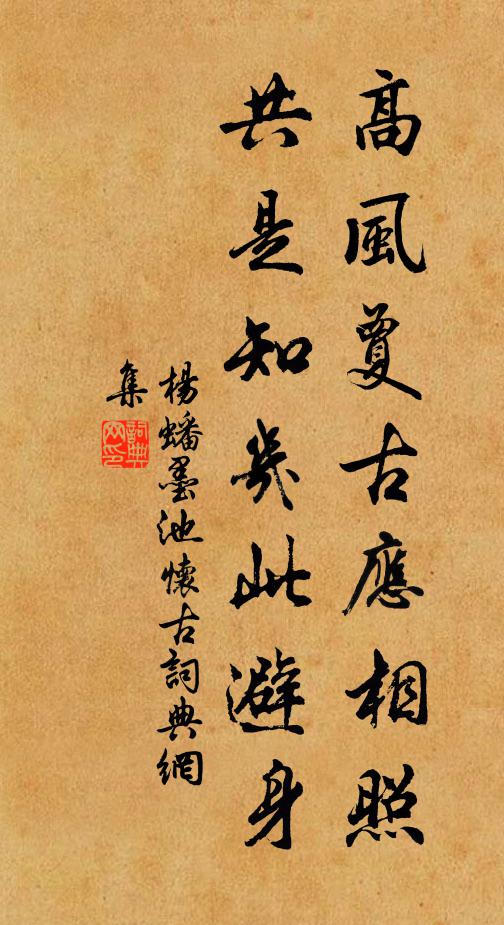 高風夐古應相照
共是知幾此避身
楊蟠墨池懷古詞典網
集
詞典網印